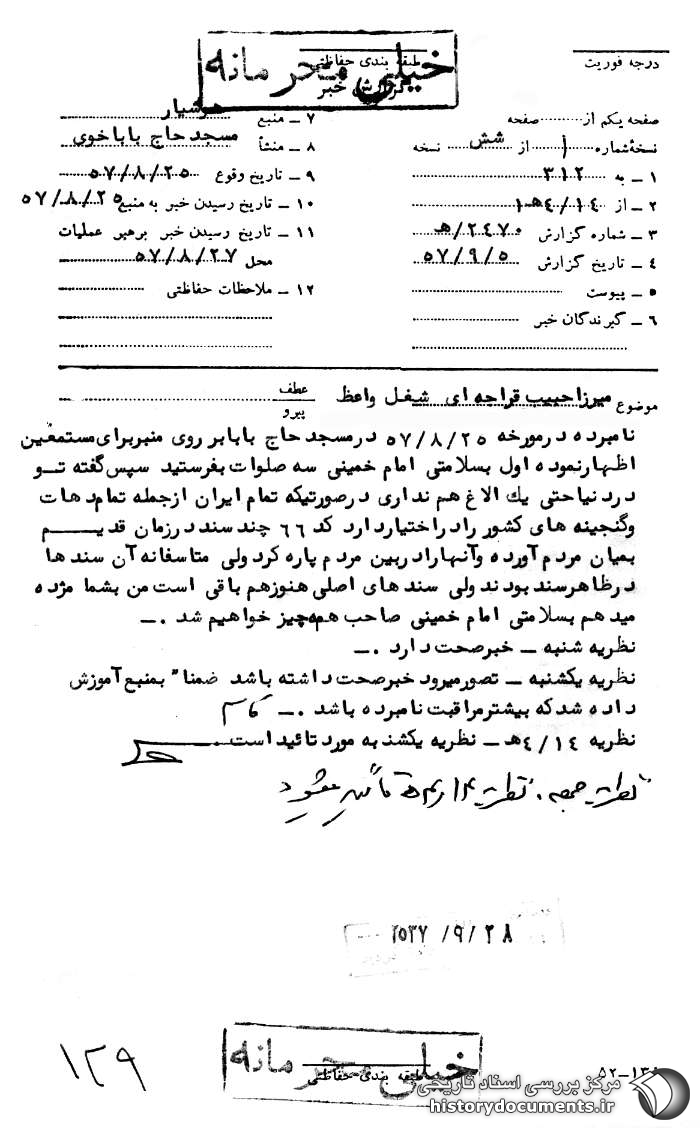 خیلی محرمانه
طبقه بندی حفاظتی
گزارش خبر
درجه فوریت
صفحه یکم از صفحه
نسخه شماره ۱ از شش نسخه
۱ ــ به ۳۱۲
۲ ــ از ۴/۱۴هـ۱
۳ ــ شماره گزارش ۲۴۷۰/هـ
۴ ــ تاریخ گزارش ۵۷/۹/۵
۵ ــ پیوست
۶ ــ گیرندگان خبر
۷ ــ منبع هوشیار
۸ ــ منشأ مسجد حاج باباخوی
۹ ــ تاریخ وقوع ۵۷/۸/۲۵
۱۰ ــ تاریخ رسیدن خبر به منبع ۵۷/۸/۲۵
۱۱ ــ تاریخ رسیدن خبر برهبر عملیات
محل ۵۷/۸/۲۷
۱۲ ــ ملاحظات حفاظتی
موضوع میرزا حبیب قراجه ای شغل واعظ
عطف
پیرو
نامبرده در مورخه ۵۷/۸/۲۵ در مسجد حاج بابا بر روی منبر برای مستمعین
اظهار نموده اول بسلامتی امام خمینی سه صلوات بفرستید سپس گفته تو
در دنیا حتی یك الاغ هم نداری در صورتیکه تمام ایران از جمله تمام دهات
و گنجینه های کشور را در اختیار دارد کد ۶۶ چند سند در زمان قدیم
بمیان مردم آورده و آنها را در بین مردم پاره کرد ولی متاسفانه آن سند ها
در ظاهر سند بودند ولی سند های اصلی هنوز هم باقی است من بشما مژده
میدهم بسلامتی امام خمینی صاحب همه چیز خواهیم شد .ــ
نظریه شنبه ــ خبر صحت دارد .ــ
نظریه یکشنبه ــ تصور میرود خبر صحت داشته باشد ضمنا" بمنبع آموزش
داده شد که بیشتر مراقبت نامبرده باشد .ــ
نظریه ۴/۱۴هـ ــ نظریه یکشنبه مورد تائید است .
نظریه جمعه .
۲۵۳۷/۹/۲۸
۱۲۹
خیلی محرمانه
طبقه بندی حفاظتی
مرکز بررسی اسناد تاریخی
historydocuments.ir